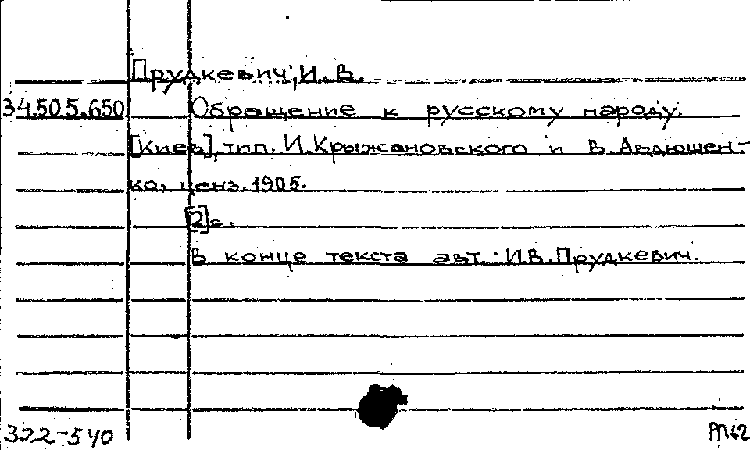 Прудкевич, И. В.
34.50.5.650 Обращение к русскому народу.
[Киев], тип. И. Крыжановского и В. Авдюшен-
ко, ценз. 1905.
[2]с.
В конце текста авт.: И.В. Прудкевич.
322-540